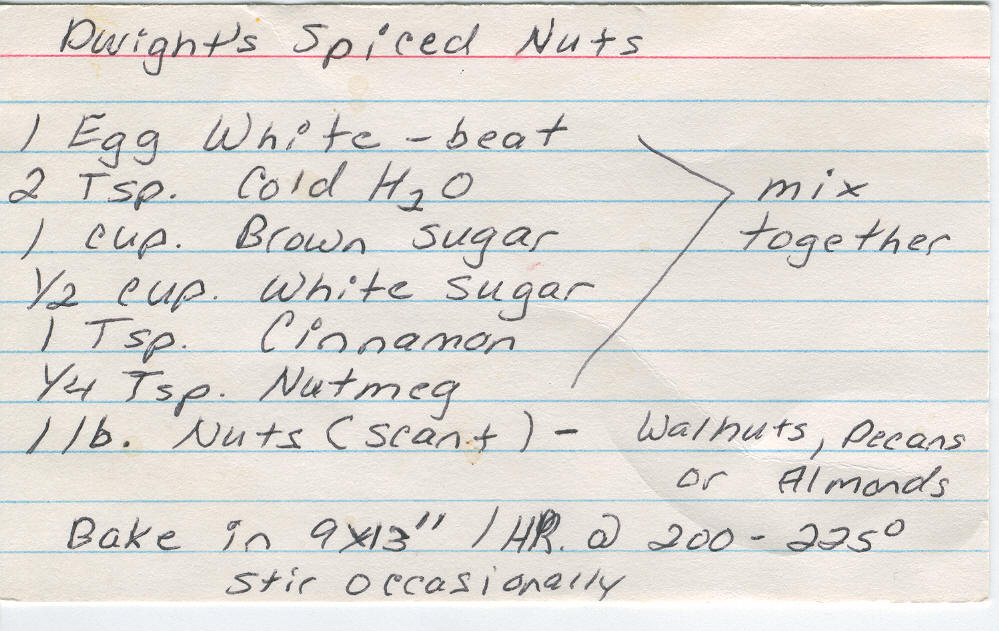 Dwight's Spiced Nuts
1 Egg White - beat
2 Tsp. Cold H₂O
mix
1 cup. Brown sugar
together
1/2 cup. White sugar
1 Tsp. Cinnamon
1/4 Tsp. Nutmeg
1 lb. Nuts (scant) - Walnuts, Pecans
or Almonds
Bake in 9x13" 1 HR. @ 200 - 225°
stir occasionally